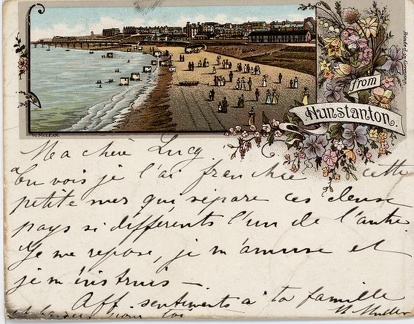 from
Hunstanton.
Ma chère Lucy
Tu vois je l'ai franchie cette
petite mer qui sépare ces deux
pays si differents l'un de l'autre
Je me repose, je m'amuse et
je m'instruis —
Aff. sentiments à ta famille
pour toi